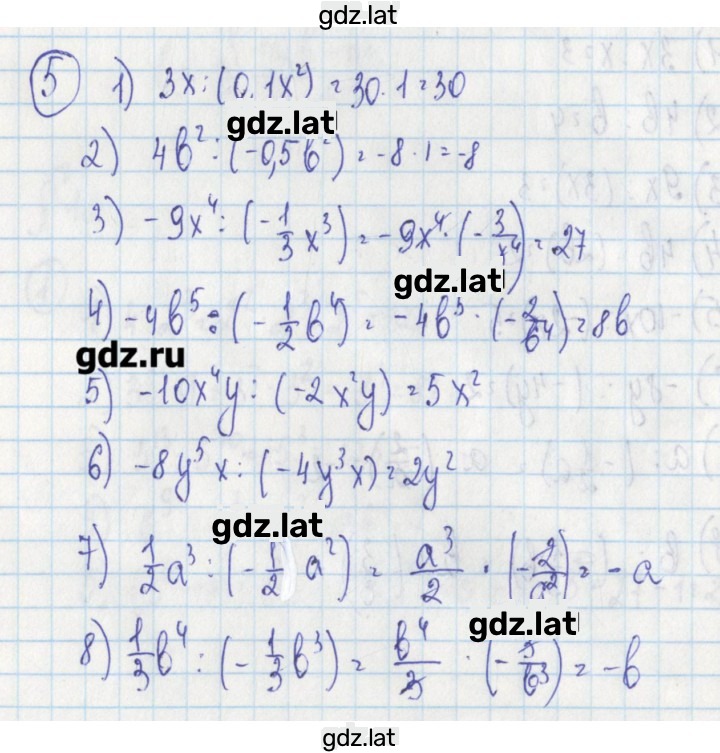 gdz.lat
5 1) 3x : (0,1x²) = 30 · 1 = 30
gdz.lat
2) 4b² : (-0,5b²) = -8 · 1 = -8
3) -9x⁴ : (-1/3 x³) = -9x⁴ · (-3/x⁴) = 27
gdz.lat
4) -4b⁵ : (-1/2 b⁴) = -4b⁵ · (-2/b⁴) = 8b
gdz.ru
5) -10x⁴y : (-2x²y) = 5x²
6) -8y⁵x : (-4y³x) = 2y²
gdz.lat
7) 1/2 a³ : (-1/2 a²) = a³/2 · (-2/a²) = -a
gdz.lat
8) 1/3 b⁴ : (-1/3 b³) = b⁴/3 · (-3/b³) = -b
gdz.lat